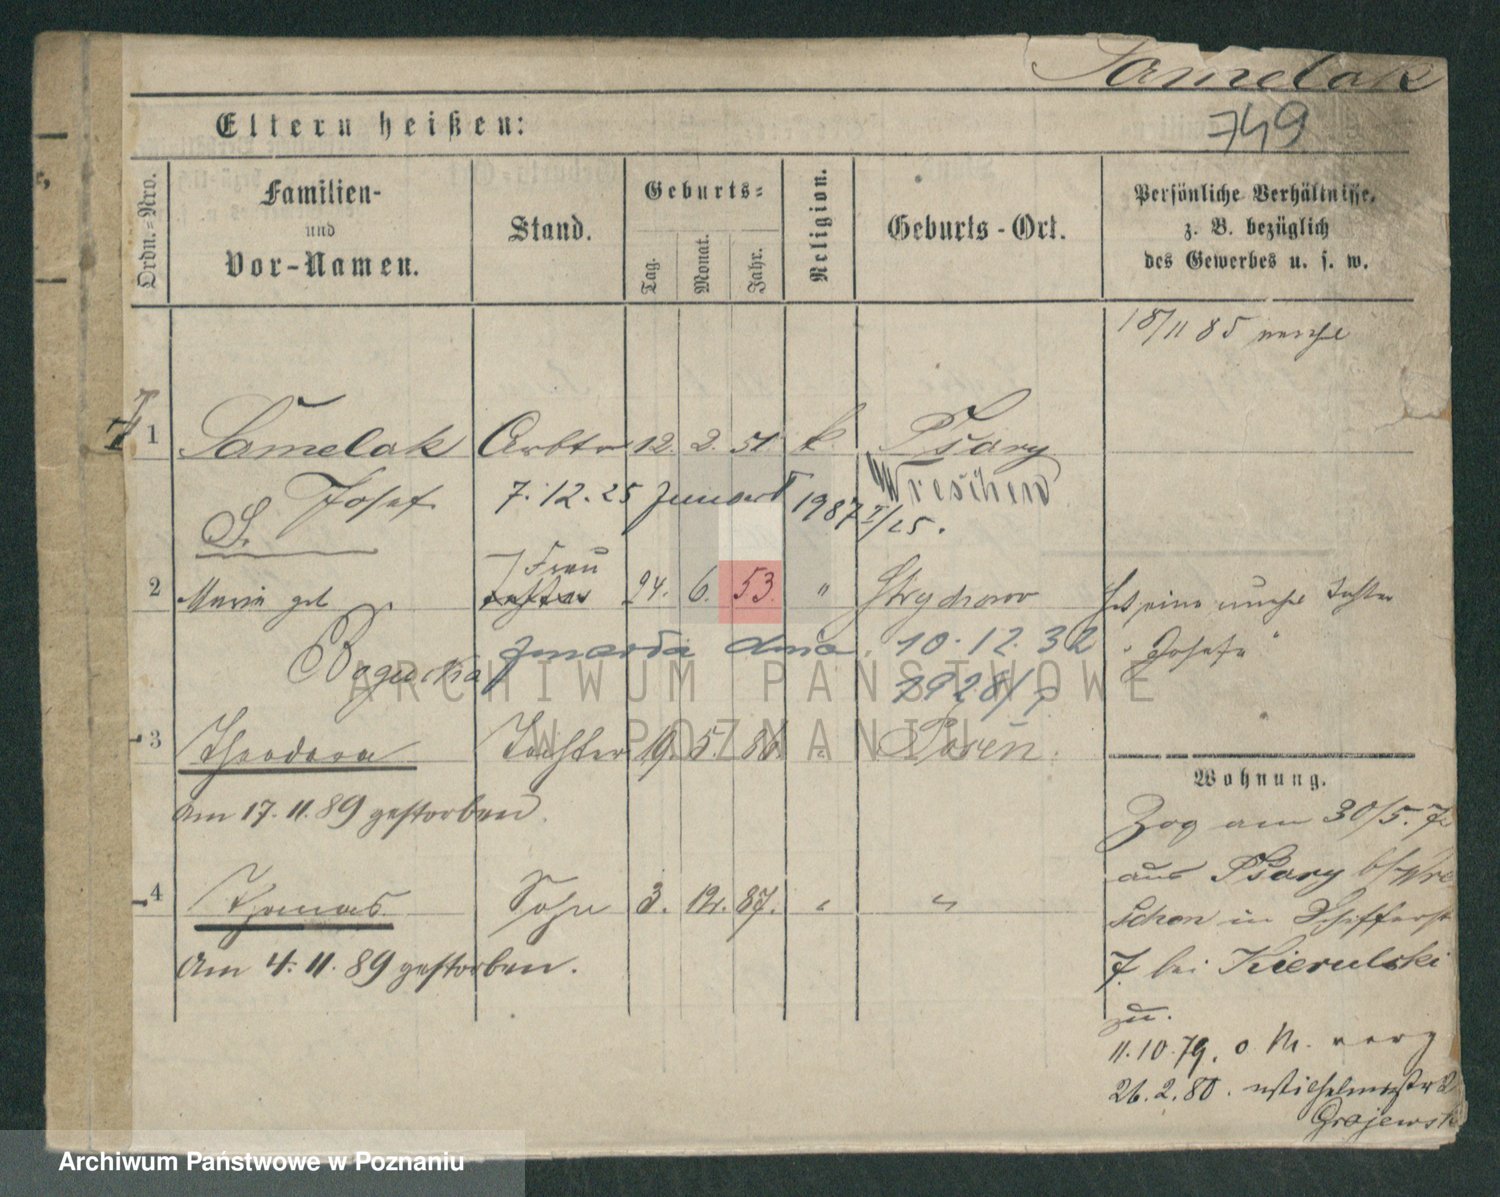 Samelak
749
Eltern heißen:
Ordn.=Nro.
Familien-
und
Vor-Namen.
Stand.
Geburts=
Tag.
Monat.
Jahr.
Religion.
Geburts-Ort.
Persönliche Verhältnisse,
z. B. bezüglich
des Gewerbes u. s. w.
18/11 85
1 Samelak Arbtr 12. 2. 51 k. Psary
Josef 7.12.25 1987 I/25. Wreschen
S.
2 Maria geb Frau 24. 6. 53. " Strychowo
Bogucka zmarła dnia 10.12.32
1928/
3 Theodora Tochter 19. 5. 86. " Posen.
am 17.11.89 gestorben.
4 Thomas Sohn 3. 12. 87. " "
Am 4.11.89 gestorben.
Tochter
"Josefa"
Wohnung.
Zog am 30/5.
aus Psary b/Wre
schen in Schifferst
7 bei Kierulski
zu.
11.10.79. o. M. verz
26.2.80. Wilhelmstr 2
Grajewsk
ARCHIWUM PAŃSTWOWE
W POZNANIU
Archiwum Państwowe w Poznaniu